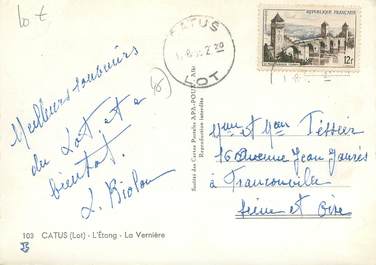 Lot
CATUS
LOT
RÉPUBLIQUE FRANÇAISE
12f
Meilleurs souvenirs
du Lot et a
bientôt.
Société des Cartes Postales APA-POUX
Reproduction interdite
Mme et Mr Tessier
16 Avenue Jean Jaurès
à Franconville
Seine et Oise
103 CATUS (Lot) - L'Étang - La Vernière